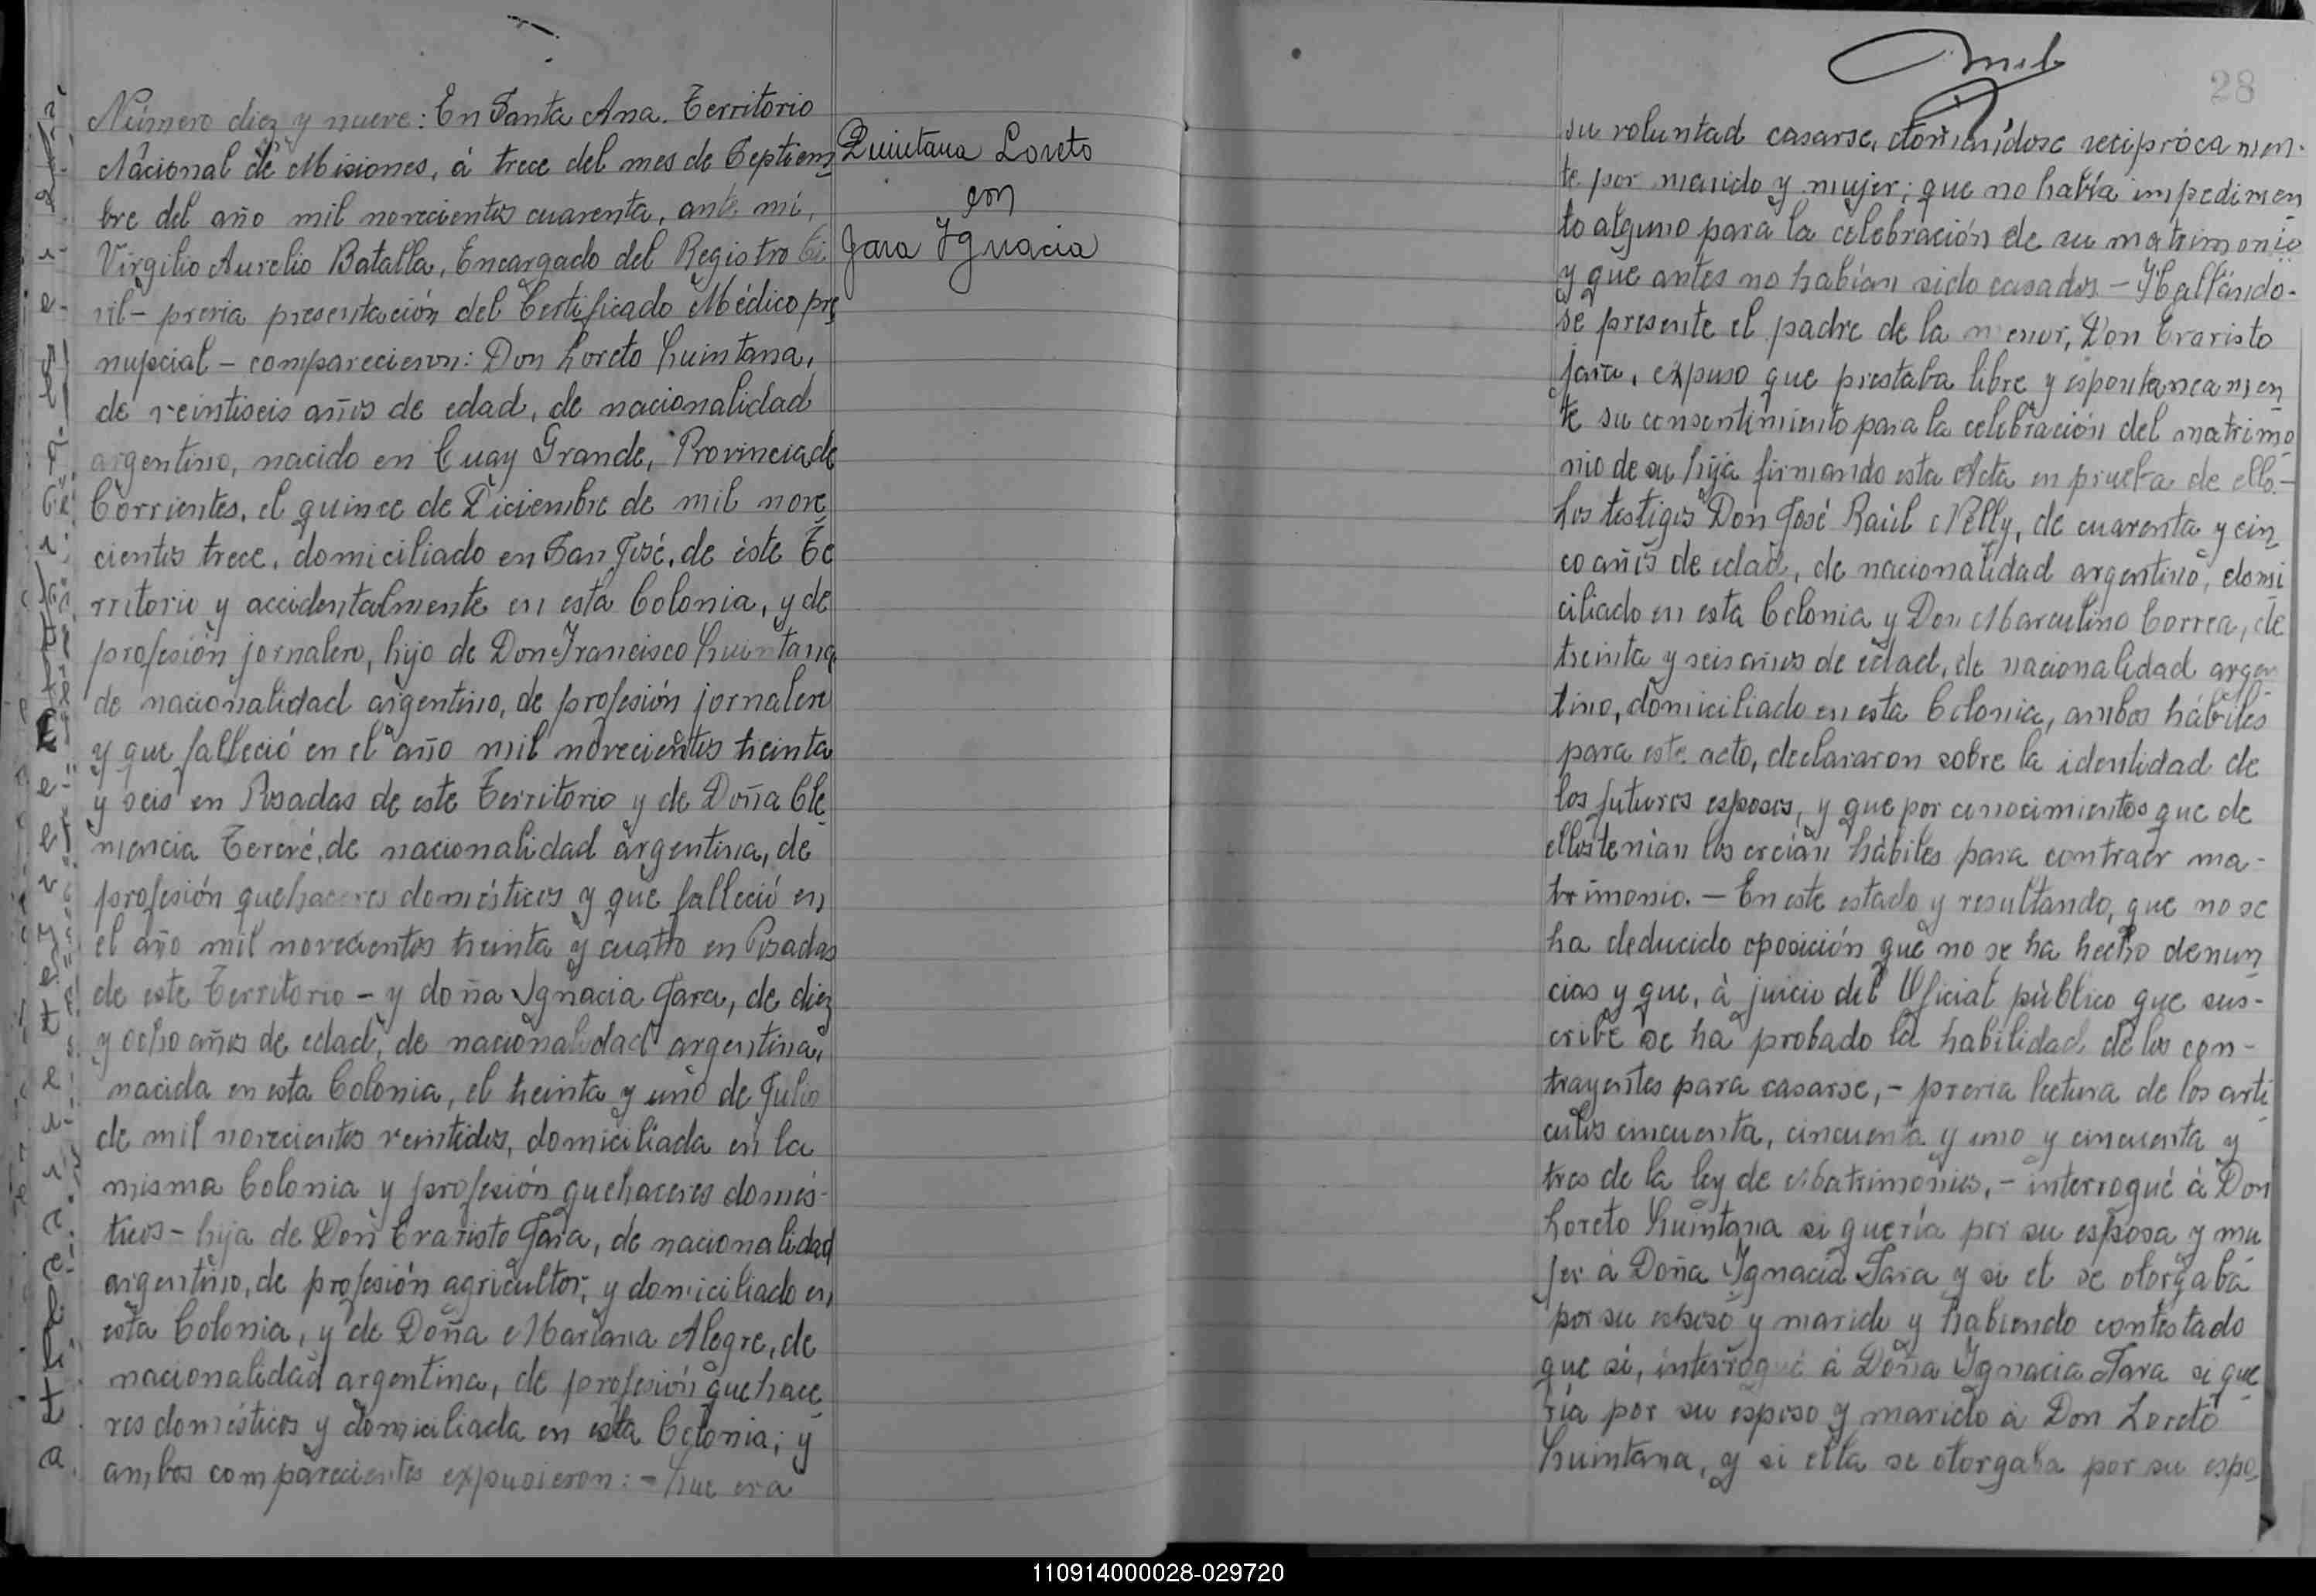 Número diez y nueve: En Santa Ana. Territorio
Nacional de Misiones, á trece del mes de Septiem
bre del año mil novecientos cuarenta, ante mí,
Virgilio Aurelio Batalla, Encargado del Registro Ci
vil - previa presentación del Certificado Médico pre
nupcial - comparecieron: Don Loreto Quintana,
de veintiseis años de edad, de nacionalidad
argentino, nacido en Cuay Grande, Provincia de
Corrientes, el quince de Diciembre de mil nove
cientos trece, domiciliado en San José, de éste Te
rritorio y accidentalmente en esta Colonia, y de
profesión jornalero, hijo de Don Francisco Quintana
de nacionalidad argentino, de profesión jornalero
y que falleció en el año mil novecientos treinta
y seis en Posadas de este Territorio y de Doña Cle
mencia Tereré, de nacionalidad argentina, de
profesión quehaceres domésticos y que falleció en
el año mil novecientos treinta y cuatro en Posadas
de este Territorio - y doña Ignacia Jara, de diez
y ocho años de edad, de nacionalidad argentina,
nacida en esta Colonia, el treinta y uno de Julio
de mil novecientos veintidos, domiciliada en la
misma Colonia y profesión quehaceres domés-
ticos - hija de Don Evaristo Jara, de nacionalidad
argentino, de profesión agricultor, y domiciliado en
esta Colonia, y de Doña Mariana Alegre, de
nacionalidad argentina, de profesión quehace
res domésticos y domiciliada en esta Colonia; y
ambos comparecientes expusieron: - Que era
Quintana Loreto
con
Jara Ignacia
28
su voluntad casarse, tomándose recíprocamen-
te por marido y mujer; que no había impedimen
to alguno para la celebración de su matrimonio
y que antes no habían sido casados - Hallándo-
se presente el padre de la menor, Don Evaristo
Jara, expuso que prestaba libre y espontaneamen
te su consentimiento para la celebración del matrimo
nio de su hija firmando esta Acta en prueba de ello. -
Los testigos Don José Raúl Nelly, de cuarenta y cin
co años de edad, de nacionalidad argentino, domi
ciliado en esta Colonia y Don Marculino Correa, de
treinta y seis años de edad, de nacionalidad argen
tino, domiciliado en esta Colonia, ambos hábiles
para este acto, declararon sobre la identidad de
los futuros esposos, y que por conocimientos que de
ellos tenían los creían hábiles para contraer ma-
trimonio. - En este estado y resultando, que no se
ha deducido oposición que no se ha hecho denun
cias y que, á juicio del Oficial público que sus-
cribe se ha probado la habilidad de los con-
trayentes para casarse, - previa lectura de los artí
culos cincuenta, cincuenta y uno y cincuenta y
tres de la ley de Matrimonios, - interrogué á Don
Loreto Quintana si quería por su esposa y mu
jer á Doña Ignacia Jara y si él se otorgaba
por su esposo y marido y habiendo contestado
que sí, interrogué á Doña Ignacia Jara si que
ría por su esposo y marido á Don Loreto
Quintana, y si ella se otorgaba por su espo
110914000028-029720